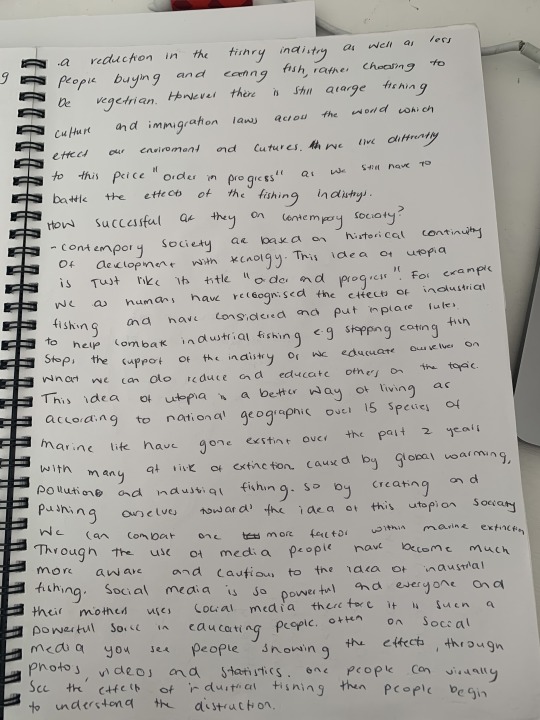 g
.a reduction in the fishry indistry as well as less
people buying and eating fish, rather choosing to
be vegetrian. However there is still alarge fishing
culture and immigration laws across the world which
effect our enviroment and cutures. we live diffrently
to this peice "order in progress" as we still have to
battle the effects of the fishing indistrys.
How successful are they on contempory society?
- contempory society are based on historical continuity
of development with tecnolgy. This idea of utopia
is just like its title "order and progress". For example
we as humans have reccognised the effects of industrial
fishing and have considered and put inplace rules
to help combate industrial fishing e.g stopping eating fish
stops the support of the indistry or we educuate ourselves on
what we can do reduce and educate others on the topic.
This idea of utopia is a better way of living as
according to national geographic over 15 species of
marine life have gone exstint over the past 2 years
with many at risk of extinction caused by global warming,
pollutions and industrial fishing. so by creating and
pushing ourselves towards the idea of this utopian society
we can combat one more factor within marine extinction
Through the use of media people have become much
more aware and cautious to the idea of industrial
fishing. Social media is so powerful and everyone and
their mother uses social media therefore it is such a
powerful sorce in educating people. often on social
media you see people showing the effects, through
photos, videos and statistics. one people can visually
see the effects of industrial fishing then people begin
to understand the distruction.